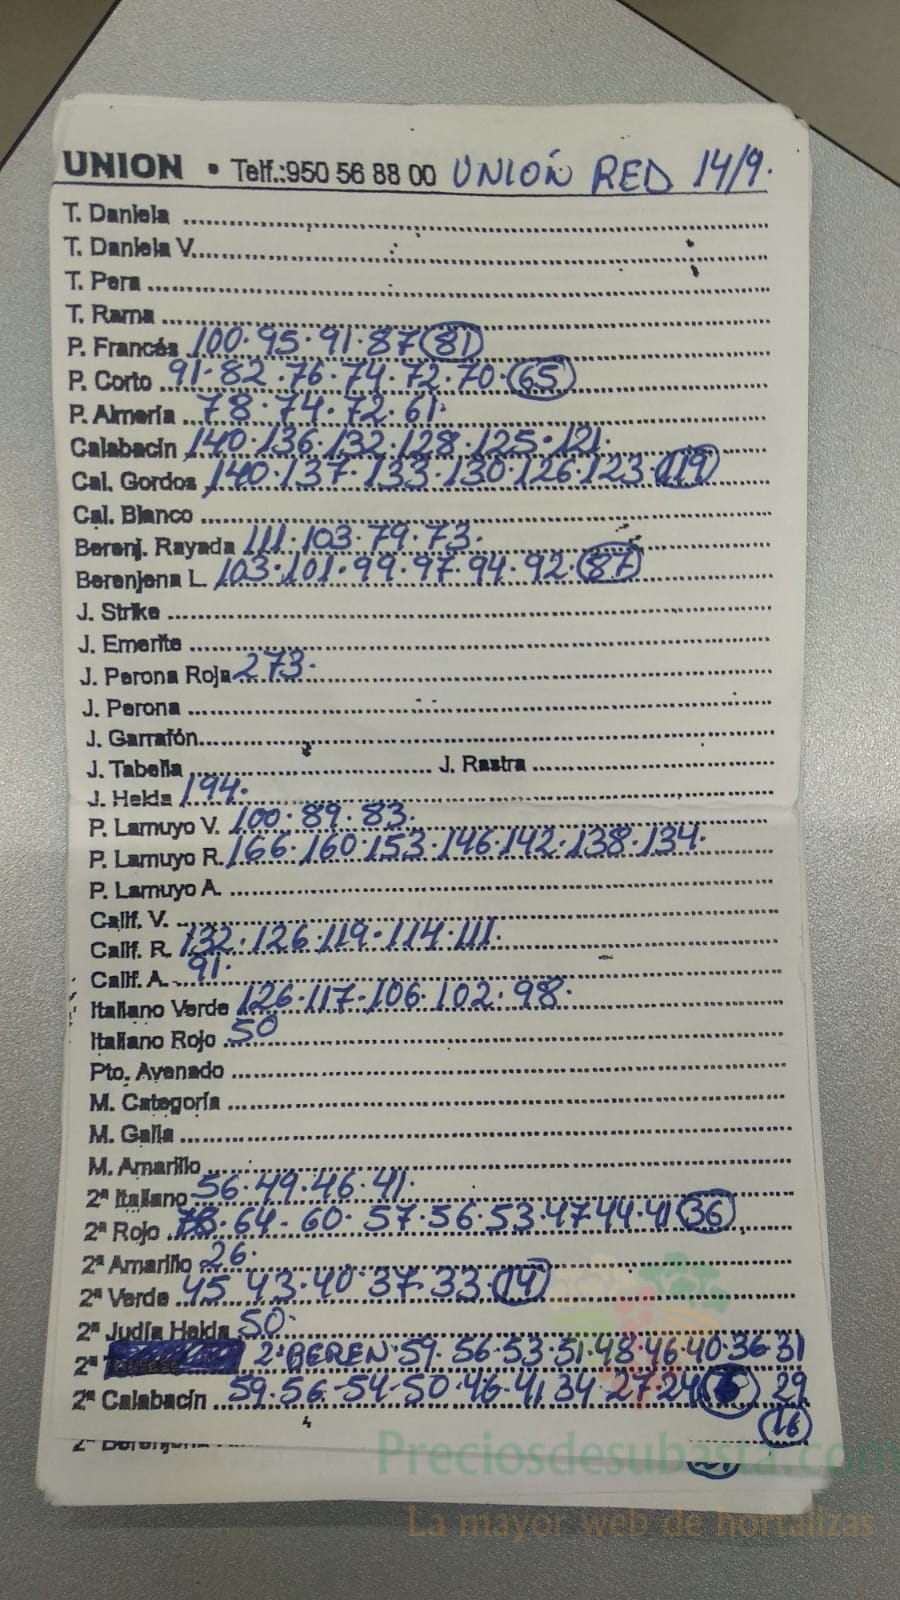 UNION • Telf.:950 56 88 00 UNIÓN RED 14/9.
T. Daniela
T. Daniela V.
T. Pera
T. Rama
P. Francés 100·95·91·87 81
P. Corto 91·82·76·74·72·70·65
P. Almería 78·74·72·61·
Calabacín 140·136·132·128·125·121·
Cal. Gordos 140·137·133·130·126·123·119
Cal. Blanco
Berenj. Rayada 111·103·79·73·
Berenjena L. 103·101·99·97·94·92·87
J. Strike
J. Emerite
J. Perona Roja 273·
J. Perona
J. Garrafón
J. Tabella J. Rastra
J. Helda 194·
P. Lamuyo V. 100·89·83·
P. Lamuyo R. 166·160·153·146·142·138·134·
P. Lamuyo A.
Calif. V.
Calif. R. 132·126·119·114·111·
Calif. A. 91·
Italiano Verde 126·117·106·102·98·
Italiano Rojo 50
Pto. Avenado
M. Categoría
M. Galia
M. Amarillo
2ª Italiano 56·49·46·41·
2ª Rojo 64·60·57·56·53·47·44·41 36
2ª Amarillo 26·
2ª Verde 45·43·40·37·33·14
2ª Judía Helda 50·
2ª 2ª BEREN·59·56·53·51·48·46·40·36·31
2ª Calabacín 59·56·54·50·46·41·34·27·24 29
16
2ª Berenjena
Preciosdesubasta.com
La mayor web de hortalizas